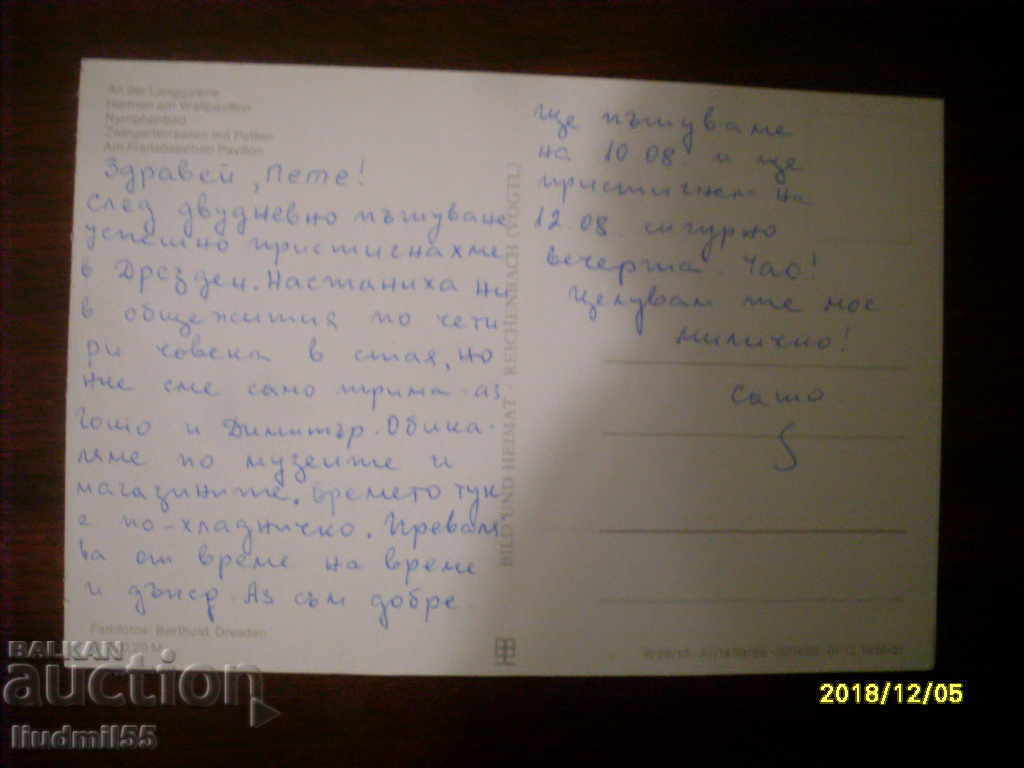 An der Langgalerie
Hermen am Wallpavillon
Nymphenbad
Zwingerterrassen mit Putten
Am Französischen Pavillon
Здравей, Пете!
След двудневно пътуване
успешно пристигнахме
в Дрезден. Настаниха ни
в общежития по чети
ри човека в стая, но
ние сме само трима - аз
Гошо и Димитър. Обика-
ляме по музеите и
магазините. Времето тук
е по-хладничко. Преваля
ва от време на време
и дъжд. Аз съм добре.
Farbfotos: Barthold, Dresden
BILD UND HEIMAT · REICHENBACH (VOGTL)
Ще пътуваме
на 10 08. и ще
пристигнем на
12.08. сигурно
вечерта. Чао!
Целувам те мое
миличко!
Сашо
BALKAN
auction
liudmil55
2018/12/05